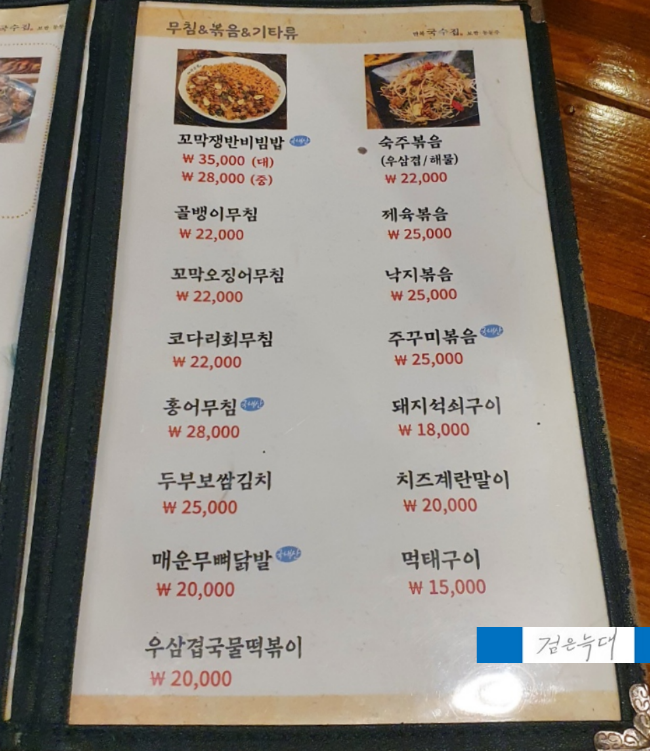 무침&볶음&기타류
국수집,
꼬막쟁반비빔밥
₩ 35,000 (대)
₩ 28,000 (중)
골뱅이무침
₩ 22,000
꼬막오징어무침
₩ 22,000
코다리회무침
₩ 22,000
홍어무침
₩ 28,000
두부보쌈김치
₩ 25,000
매운무뼈닭발
₩ 20,000
우삼겹국물떡볶이
₩ 20,000
숙주볶음
(우삼겹/해물)
₩ 22,000
제육볶음
₩ 25,000
낙지볶음
₩ 25,000
주꾸미볶음
₩ 25,000
돼지석쇠구이
₩ 18,000
치즈계란말이
₩ 20,000
먹태구이
₩ 15,000
검은늑대